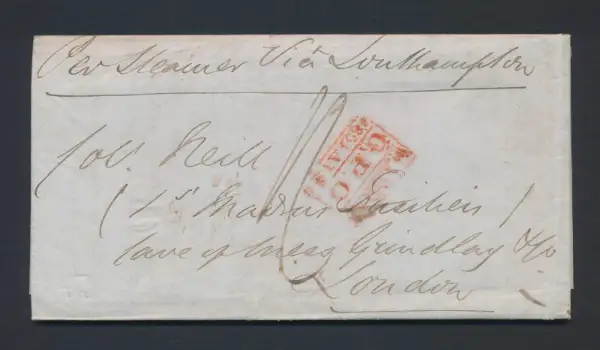 Per Steamer Viâ Southampton
Col. Neill
(1st Madras Fusiliers)
Care of Messrs Grindlay & Co
London
G.P.O